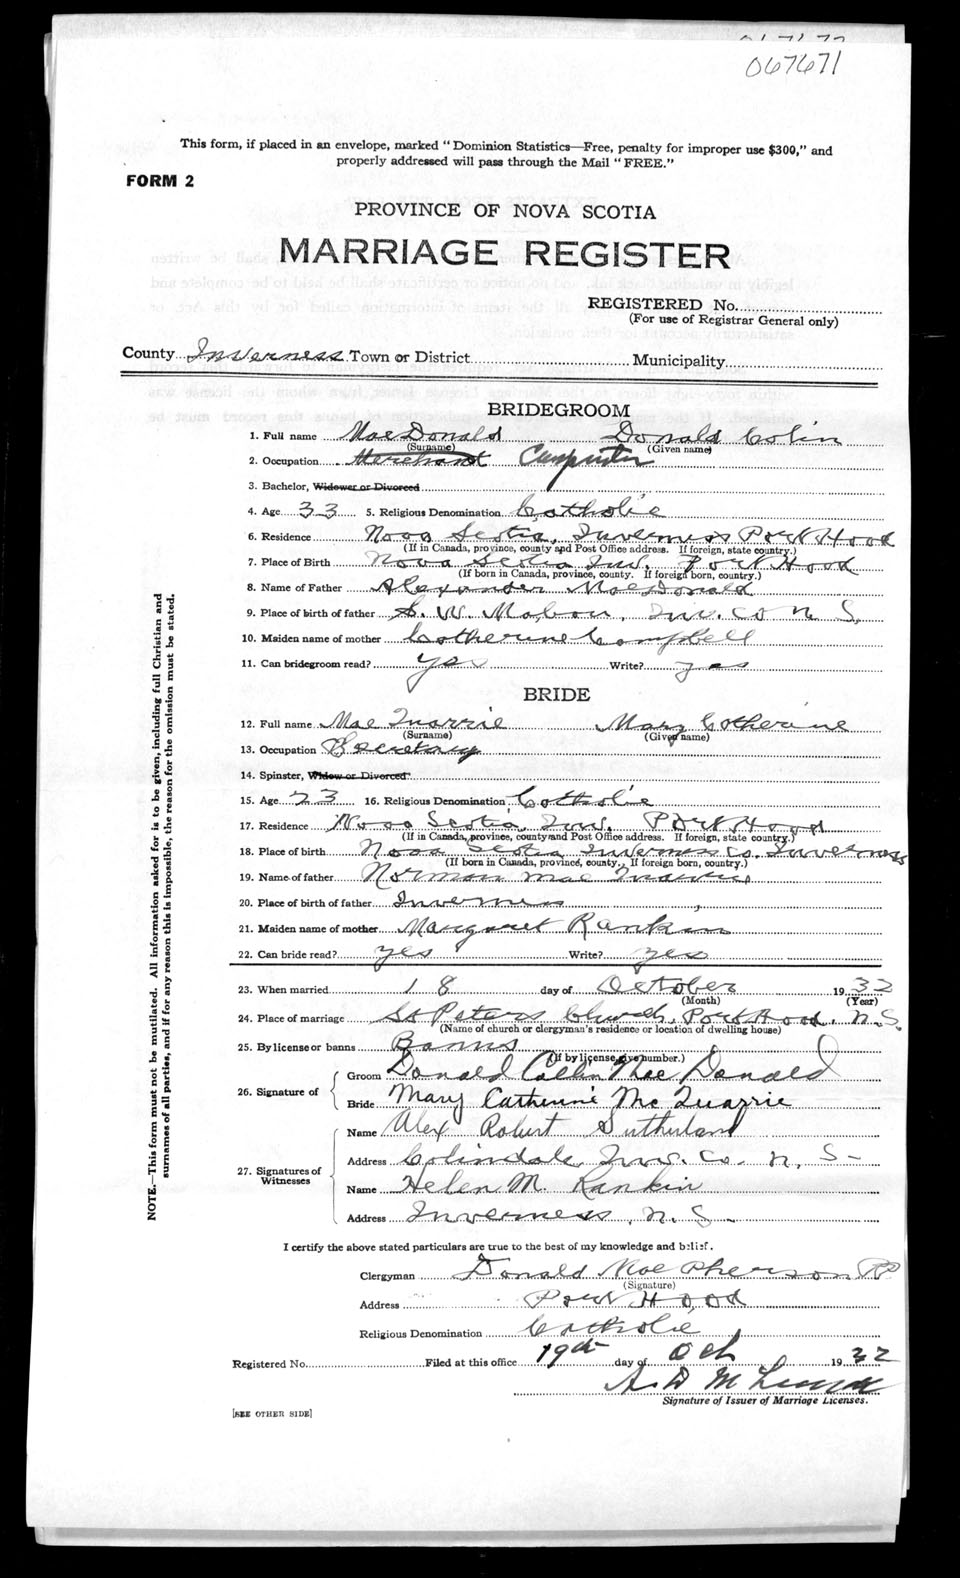 067671
This form, if placed in an envelope, marked "Dominion Statistics—Free, penalty for improper use $300," and
properly addressed will pass through the Mail "FREE."
FORM 2
PROVINCE OF NOVA SCOTIA
MARRIAGE REGISTER
REGISTERED No.
(For use of Registrar General only)
County Inverness Town or District Municipality
BRIDEGROOM
1. Full name MacDonald Donald Colin
(Surname) (Given name)
2. Occupation Merchant Carpenter
3. Bachelor, Widower or Divorced
4. Age 33 5. Religious Denomination Catholic
6. Residence Nova Scotia, Inverness Port Hood
(If in Canada, province, county and Post Office address. If foreign, state country.)
7. Place of Birth Nova Scotia Inv. Port Hood
(If born in Canada, province, county. If foreign born, country.)
8. Name of Father Alexander MacDonald
9. Place of birth of father S. W. Mabou, Inv. Co N S.
10. Maiden name of mother Catherine Campbell
11. Can bridegroom read? yes Write? yes
BRIDE
12. Full name Mac Quarrie Mary Catherine
(Surname) (Given name)
13. Occupation Secretary
14. Spinster, Widow or Divorced
15. Age 23 16. Religious Denomination Catholic
17. Residence Nova Scotia, Inv. Port Hood
(If in Canada, province, county and Post Office address. If foreign, state country.)
18. Place of birth Nova Scotia Inverness Co. Inverness
(If born in Canada, province, county., If foreign born, country.)
19. Name of father Norman Mac Quarrie
20. Place of birth of father Inverness
21. Maiden name of mother Margaret Rankin
22. Can bride read? yes Write? yes
23. When married 18 day of October 1932
(Month) (Year)
24. Place of marriage St Peters Church, Port Hood, N.S.
(Name of church or clergyman's residence or location of dwelling house)
25. By license or banns Banns
(If by license, give number.)
26. Signature of Groom Donald Collin Mac Donald
Bride Mary Catherine Mc Quarrie
27. Signatures of Witnesses
Name Alex Robert Sutherland
Address Colindale, Inv. Co. N. S-
Name Helen M Rankin
Address Inverness, N. S-
I certify the above stated particulars are true to the best of my knowledge and belief.
Clergyman Donald MacPherson PP
(Signature)
Address Port Hood
Religious Denomination Catholic
Registered No. Filed at this office 19th day of Oct 1932
A. D
Signature of Issuer of Marriage Licenses.
[SEE OTHER SIDE]
NOTE.—This form must not be mutilated. All information asked for is to be given, including full Christian and
surnames of all parties, and if for any reason this is impossible, the reason for the omission must be stated.